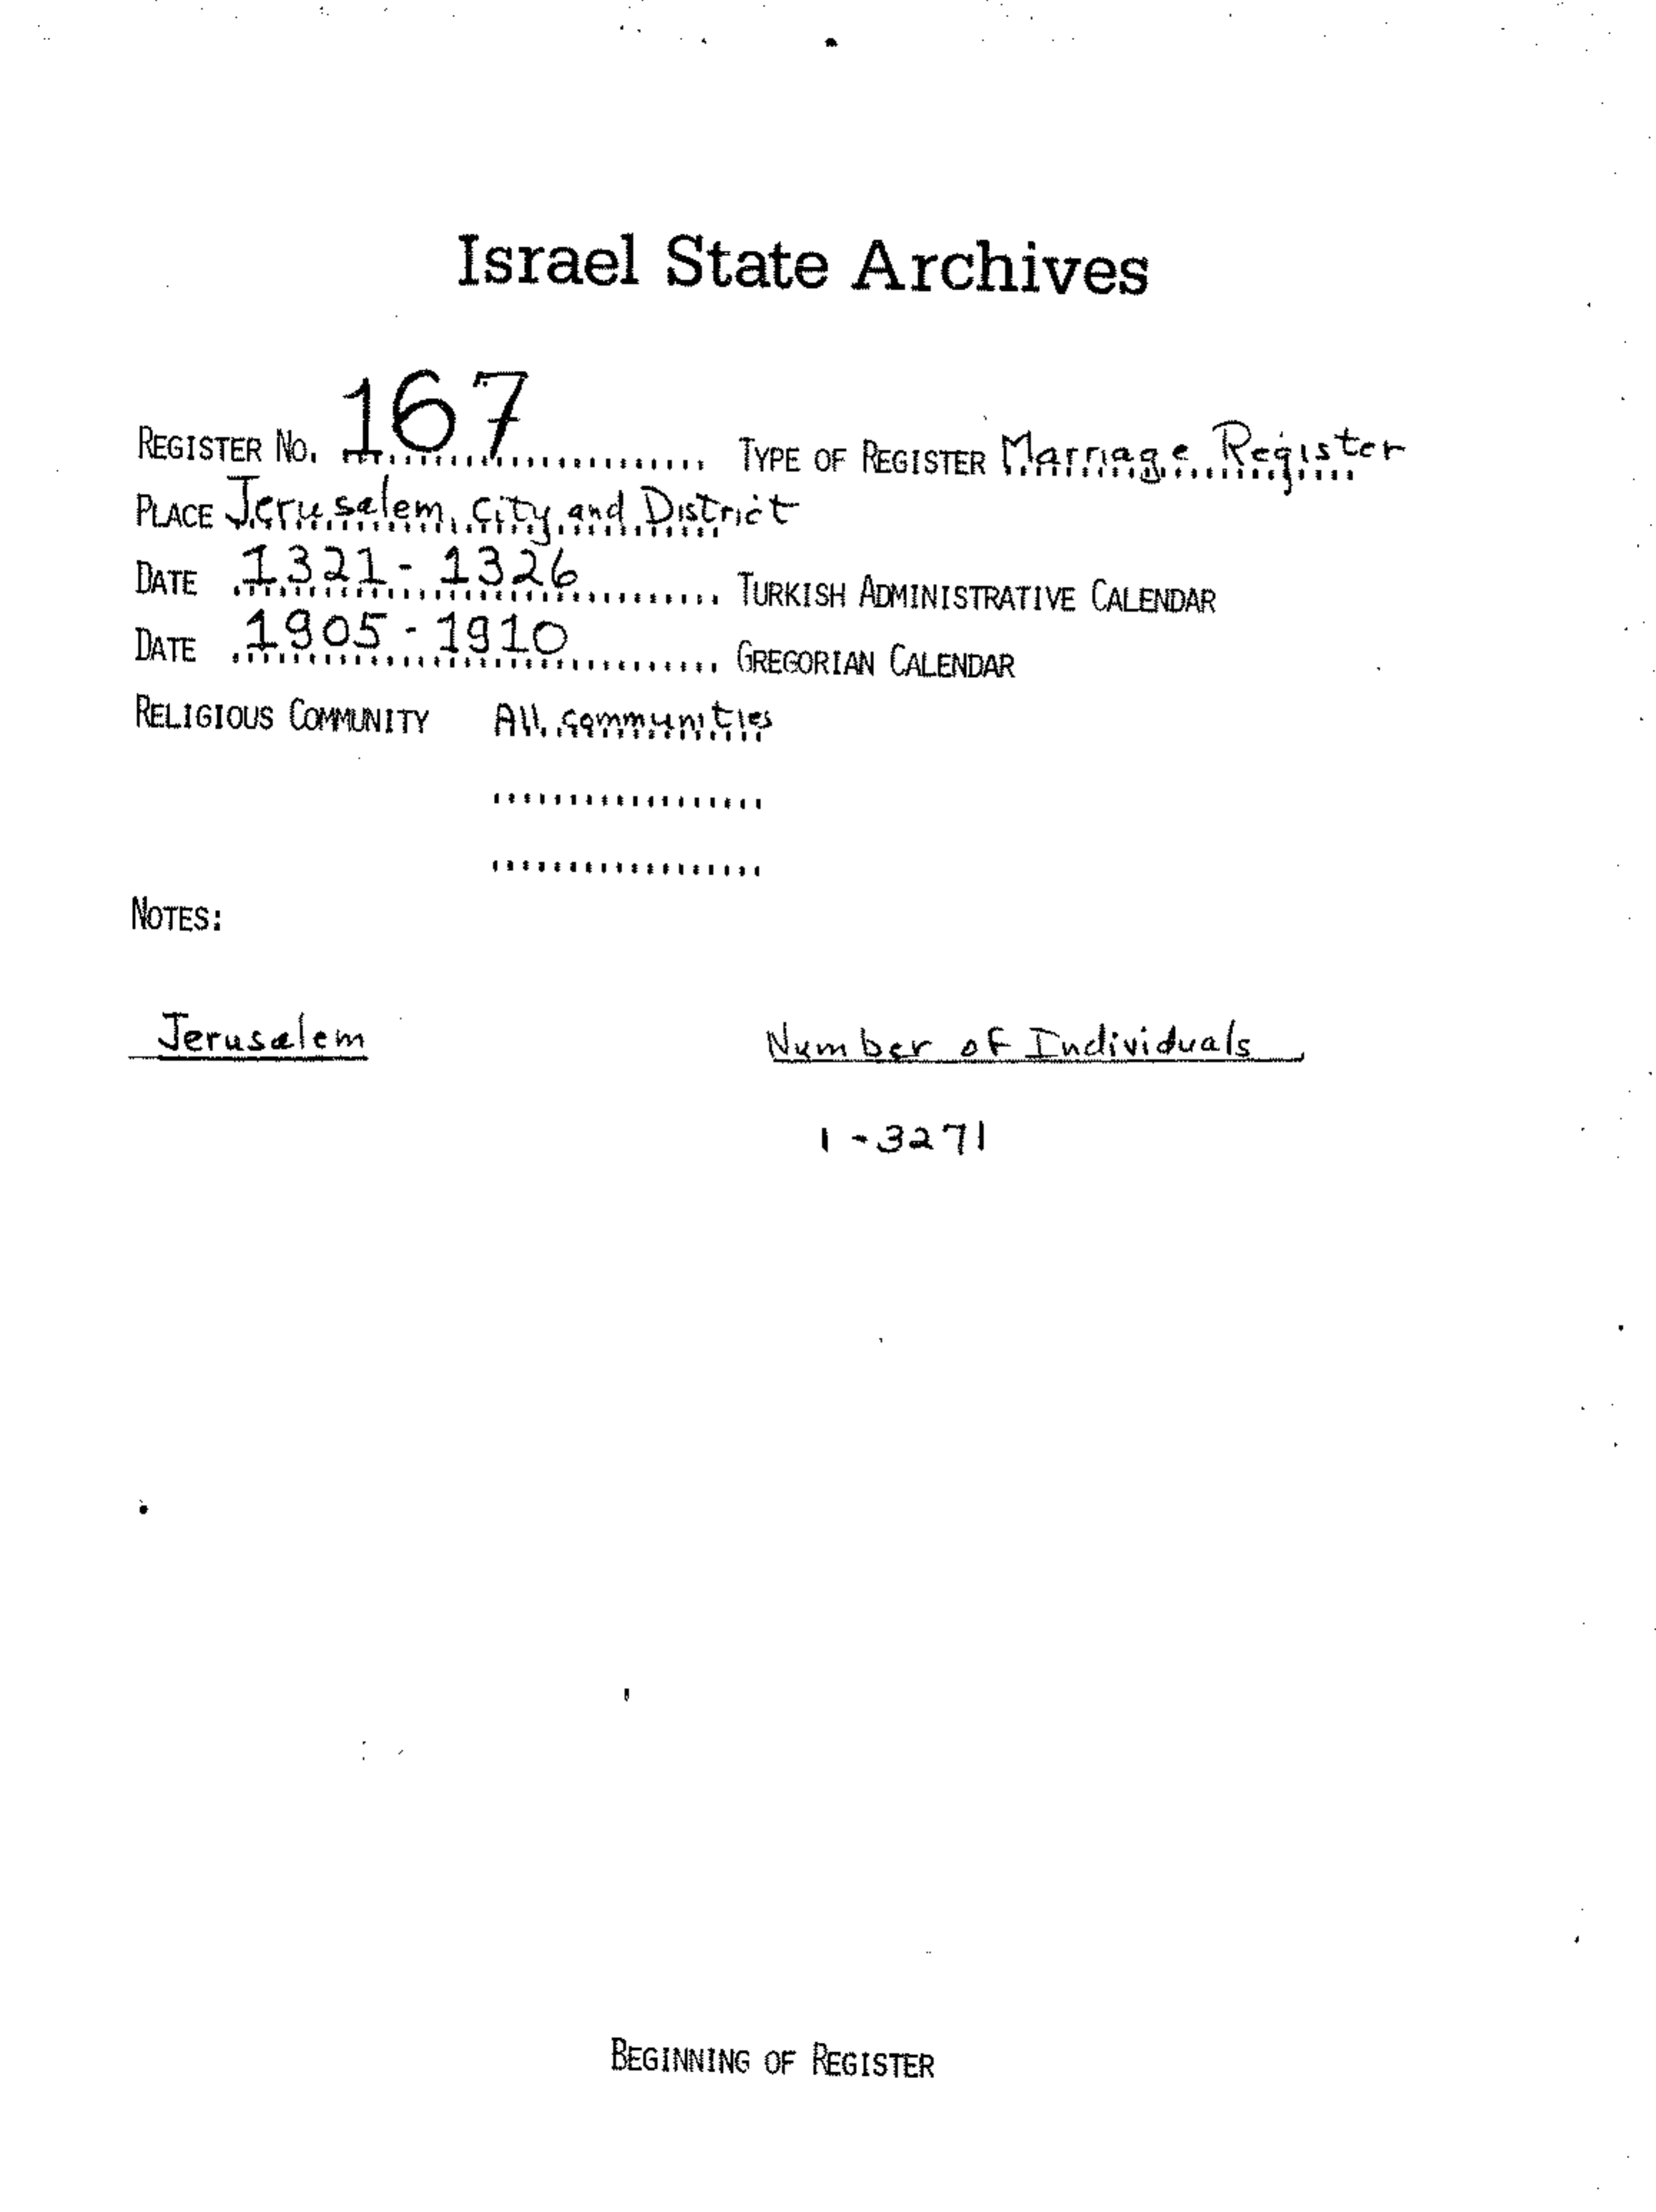 Israel State Archives
REGISTER NO. 167 TYPE OF REGISTER Marriage Register
PLACE Jerusalem, City and District
DATE 1321 - 1326 TURKISH ADMINISTRATIVE CALENDAR
DATE 1905 - 1910 GREGORIAN CALENDAR
RELIGIOUS COMMUNITY All communities
NOTES:
Jerusalem Number of Individuals
1 - 3271
BEGINNING OF REGISTER